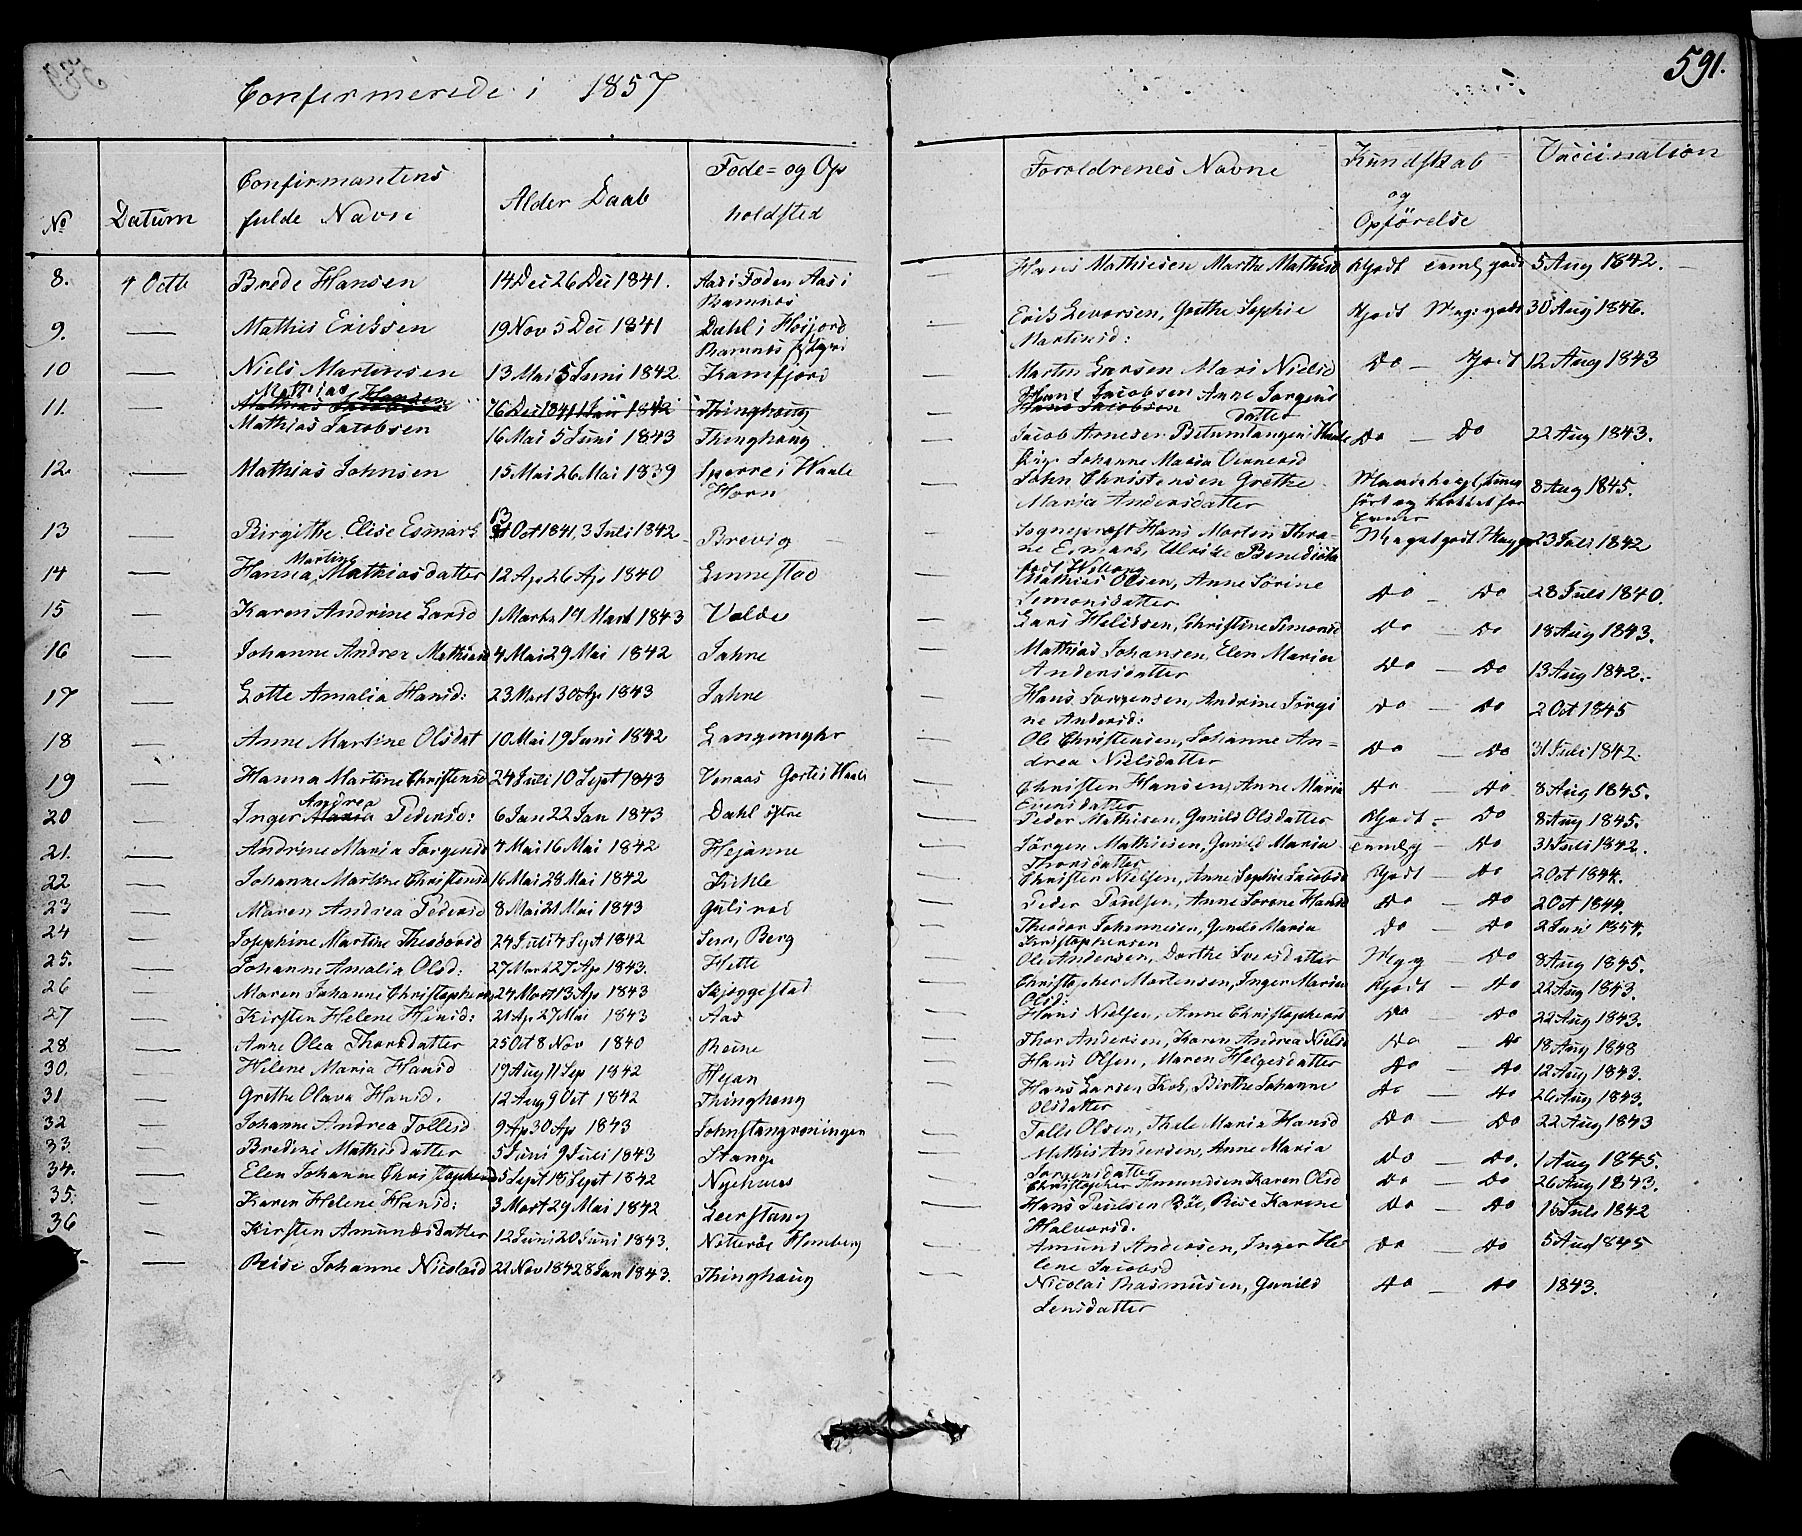 591.
Confirmerede i 1857
No
Datum
Confirmantens
fulde Navn
Alder Daab
Føde= og Op
holdsted
Foroldrenes Navne
Kundskab
og
Opførelse
Vaccination
8. 4 Octb Brede Hansen 14 Dec 26 Dec 1841. Aas i Foden Aas i Hans Mathiesen Marthe Mathisd Godt 5 Aug 1842.
Ramnes
9. — Mathis Eriksen 19 Nov 5 Dec 1841 Dahl i Høijord Erik Evarsen, Grethe Sophie Godt 30 Aug 1846.
Ramnes Martinsd:
10 — Niels Martinsen 13 Mai 5 Juni 1842 Kamfjord Martin Larsen Mari Nielsd Do — Godt 12 Aug 1843
Mathias Hansen Hans Jacobsen Anne Jørgens
11. — Mathias Jacobsen 26 Dec 1841 1 Jan 1842 Thinghaug Hans Jacobsen datter
Mathias Jacobsen 16 Mai 5 Juni 1843 Thinghaug Jacob Arnesen Do — Do 22 Aug 1843.
Johanne Maria
12. — Mathias Johnsen 15 Mai 26 Mai 1839 Sperre i Waale John Christensen Grethe 8 Aug 1845.
Horn Maria Andersdatter
13 Birgithe Elise Esmark 13 Oct 1841, 3 Juli 1842 Brevig — Sogneprest Hans Morten Thra= Meget godt Meget 23 Juli 1842
ne Esmark, Ulrike Benedicta
født Wiborg
Martine
14 — Hanna Mathiasdatter 12 Ap 26 Ap 1840 Linnestad Mathies Olsen, Anne Sørine Do — Do 28 Juli 1840.
Simonsdatter
15 — Karen Andrine Larsd 1 Marts 19 Mart 1843 Valde Lars Helissen, Christine Simonsd Do — Do 18 Aug 1843.
16 — Johanne Andrea Mathiasd 4 Mai 29 Mai 1842 Jahne Mathias Johansen, Elen Maria Do — Do 13 Aug 1842.
Andersdatter
17 — Lotte Amalia Hansd: 23 Mart 30 Ap 1843 Jahne Hans Jørgensen, Andrine Jørgi Do — Do 2 Oct 1845
ne Andersd:
18 — Anne Martine Olsdat 10 Mai 19 Juni 1842 Langemyhr Ole Christensen, Johanne An= Do — Do 31 Juli 1842.
drea Nielsdatter
19 — Hanna Martine Christensd 24 Juli 10 Sept 1843 Venaas Waale Christen Hansen, Anne Maria Do — Do 8 Aug 1845.
Evensdatter
Andrea
20 — Inger Maria Pedersd: 6 Jan 22 Jan 1843 Dahl østre Peder Mathisen, Gunild Olsdatter Godt — Do 8 Aug 1845.
21. — Andrine Maria Jørgensd 4 Mai 16 Mai 1842 Hejanne Jørgen Mathiesen, Gunild Maria — Do 31 Juli 1842.
Thorsdatter
22 — Johanne Martine Christensd 16 Mai 28 Mai 1842 Christen Nielsen, Anne Sophie Jacobsd Godt — Do 2 Oct 1844.
23 — Maren Andrea Pedersd 8 Mai 21 Mai 1843 Gulirød Peder Paulsen, Anne Sørine Hansd Do — Do 2 Oct 1844.
24 — Josephine Martine Theodorsd 24 Juli 4 Sept 1842 Sem, Berg Theodor Johannesen, Gunild Maria Do — Do 2 Juni 1854.
Kristophersen
25. — Johanne Amalia Olsd: 27 Mart 27 Ap 1843. Hette Ole Andersen, Dorthe Iversdatter — Do 8 Aug 1845.
26 — Maren Johanne Christophersd 24 Mart 13 Ap 1843 Skjeggestad Christopher Mortensen, Inger Maria Godt — Do 22 Aug 1843.
Olsd:
27 — Kirsten Helene Hansd: 21 Ap 27 Mai 1843 Aas Hans Nielsen, Anne Christophersd Do — Do 22 Aug 1843.
28 — Anne Olea Thorsdatter 25 Oct 8 Nov 1840 Reine Thor Andersen, Karen Andrea Nielsd Do — Do 18 Aug 1848
30. — Helene Maria Hansd 19 Aug 11 Sep 1842 Hejan Hans Olsen, Maren Helgesdatter Do — Do 12 Aug 1843.
31 — Grethe Olava Hansd. 12 Aug 9 Oct 1842 Thinghaug Hans Larsen Kok, Birthe Johanne Do — Do 26 Aug 1843.
Olsdatter
32 — Johanne Andrea Tollesd 9 Ap 30 Ap 1843 Johnstangrøningen Tolle Olsen, Thele Maria Hansd Do — Do 22 Aug 1843
33. — Bredine Mathisdatter 5 Juni 9 Juli 1843 Stange Mathis Andersen, Anne Maria Do — Do. 1 Aug 1845.
Jørgensdatter
34. — Elen Johanne Christophersd 5 Sept 18 Sept 1842 Nyehuus Christopher Amundsen Karen Olsd Do — Do 26 Aug 1843.
35. — Karen Helene Hansd: 3 Mart 29 Mai 1842 Leerstang Hans Paulsen Bøe, Reise Karine Do — Do 15 Juli 1842
Halvorsd.
36 — Kirsten Amundsdatter 12 Juni 20 Juni 1843. Nøtterøe Hemberg Amund Andersen, Inger He= Do — Do 5 Aug 1845
lene Jacobsd
— Reise Johanne Nicolaisd 22 Nov 1842 8 Jan 1843. Thinghaug Nicolai Rasmusen, Gunild Do — Do 1843.
Jensdatter